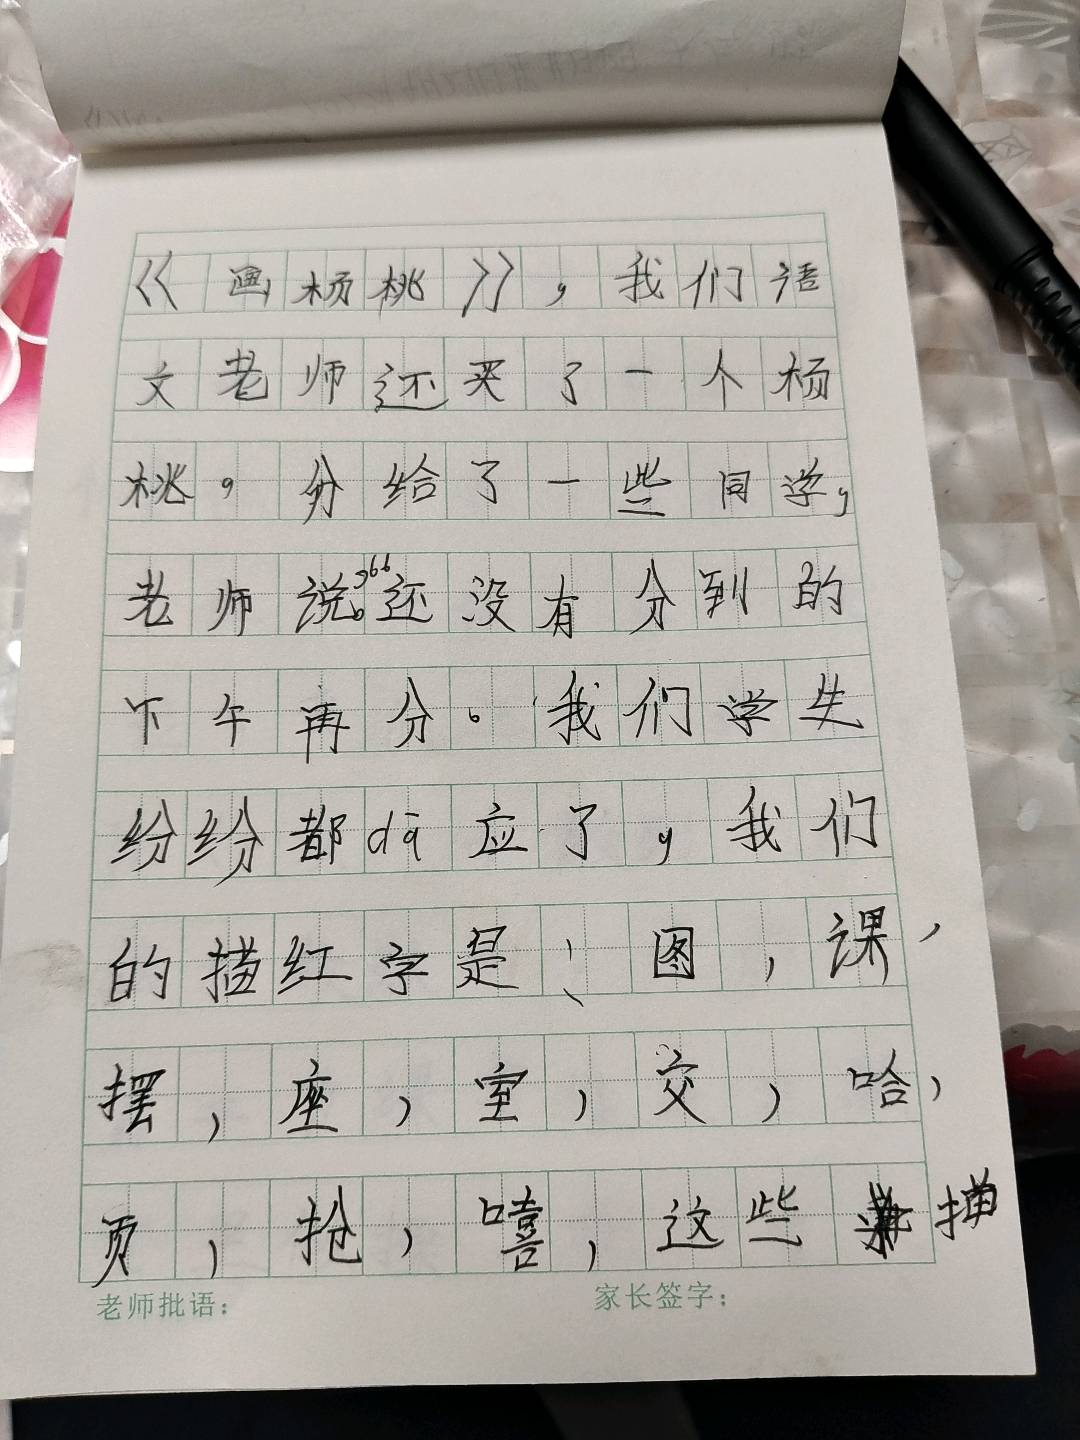 《画杨桃》,我们语
文老师还买了一个杨
桃,分给了一些同学,
老师说:“还没有分到的
下午再分。我们学失
纷纷都dā应了,我们
的描红字是:图,课,
摆,座,室,交,哈,
页,抢,嘻,这些描
老师批语: 家长签字: